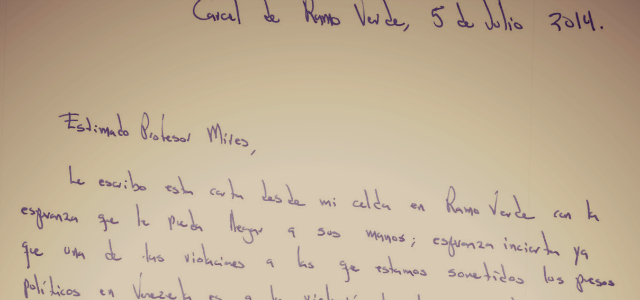 Carcel de Ramo Verde, 5 de Julio 2014.
Estimado Profesor Miles,
Le escribo esta carta desde mi celda en Ramo Verde con la
esperanza que le pueda llegar a sus manos; esperanza incierta ya
que una de las violaciones a las que estamos sometidos los presos
políticos en Venezuela es a la